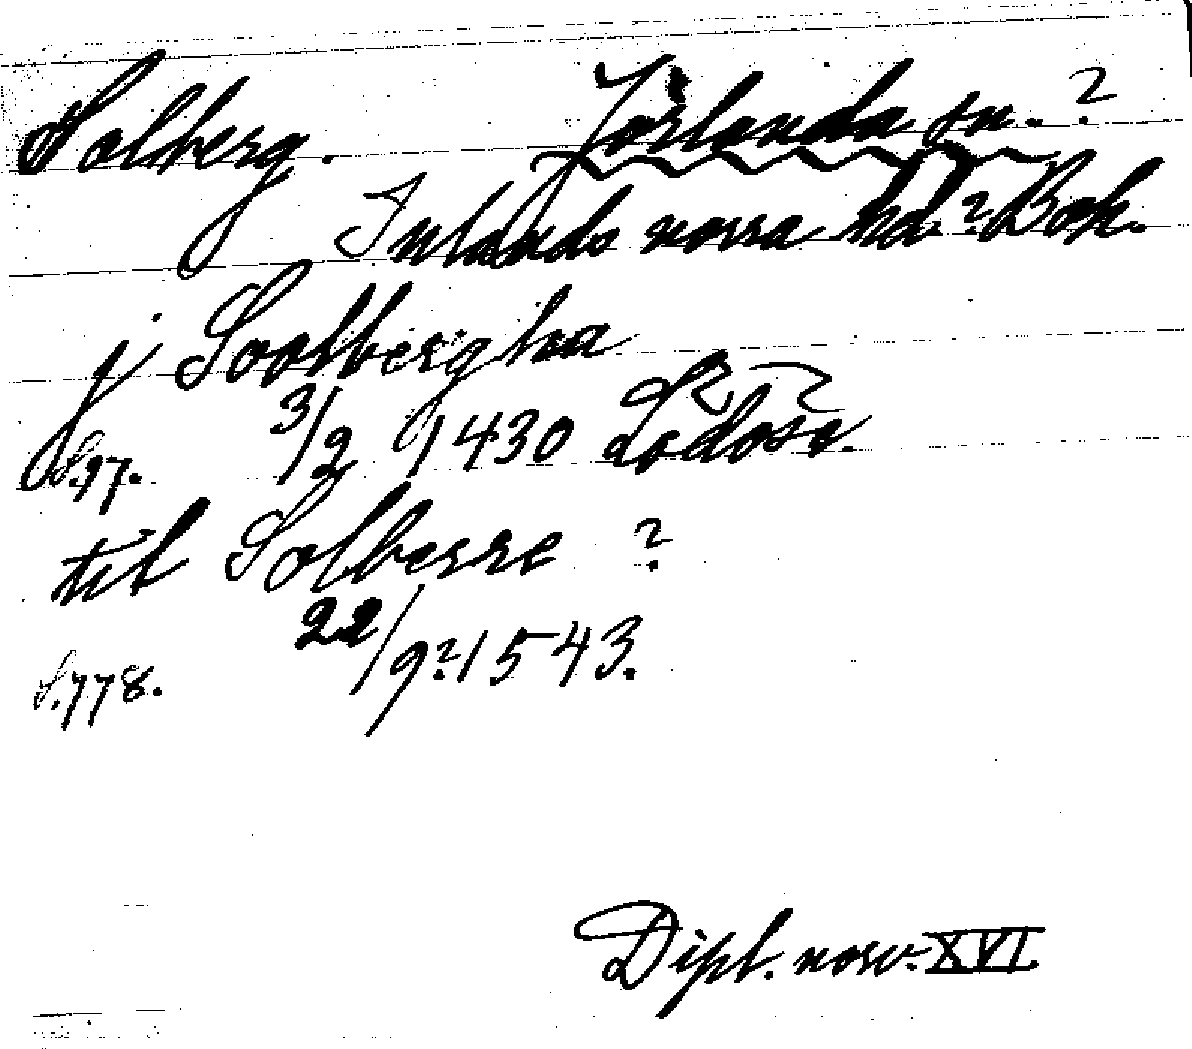 Solberg. Jörlanda sn.?
Inlands norra hd.? Boh.
j Soolbergha
S.97. 3/2 1430 Lödöse.
til Solberre ?
S.778. 22/9? 1543.
Dipl. norv. XVI.